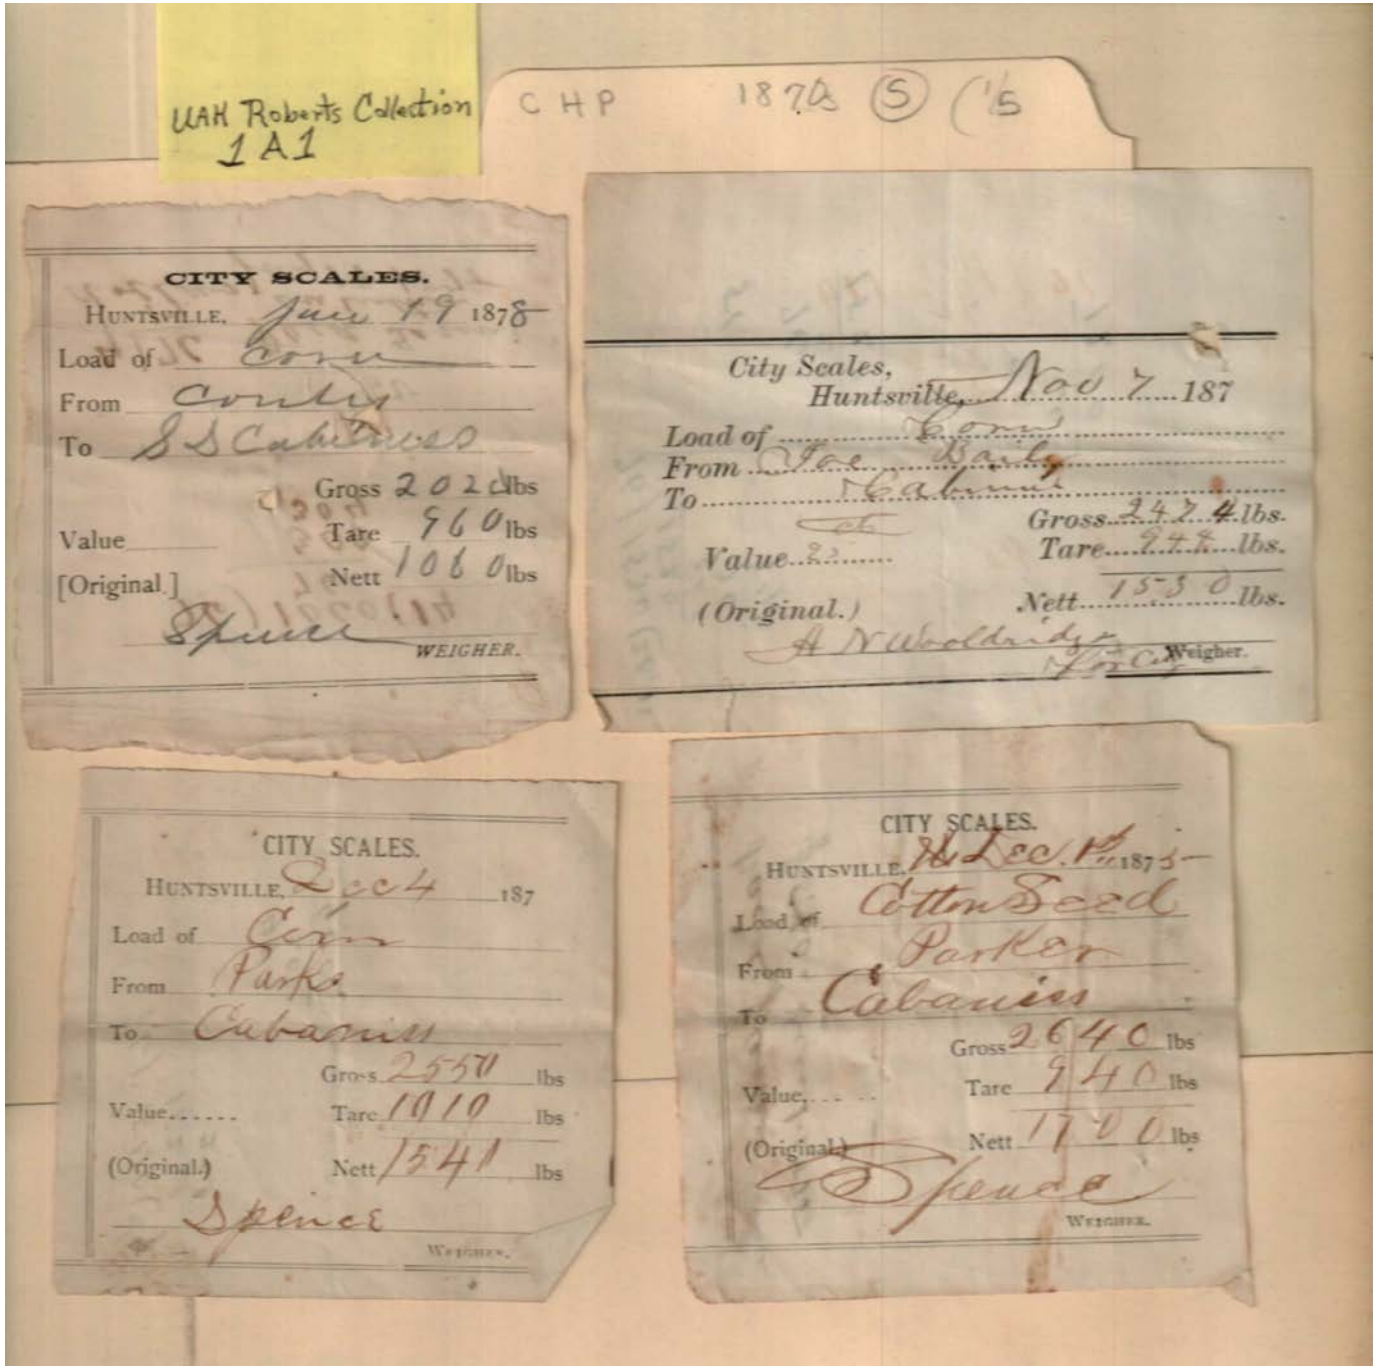 UAH Roberts Collection
1A1
CHP 1870s (S) ('5
CITY SCALES.
HUNTSVILLE, 19 1878
Load of corn
From
To S D Cabaniss
Gross 2020 lbs
Tare 960 lbs
Value
Nett 1060 lbs
[Original.]
Spence
WEIGHER.
City Scales,
Huntsville, Nov 7 187
Load of Corn
From Joe Baily
To
Gross 2474 lbs.
Value
Tare 944 lbs.
Nett 1530 lbs.
(Original.)
A N Wooldridge
Weigher.
CITY SCALES.
HUNTSVILLE, Dec 4 187
Load of Corn
From Parks
To Cabaniss
Gross 2550 lbs
Value...... Tare 1010 lbs
(Original.) Nett 1540 lbs
Spence
WEIGHER.
CITY SCALES.
HUNTSVILLE, Dec. 1875
Load of Cotton Seed
From Parker
To Cabaniss
Gross 2640 lbs
Value, Tare 940 lbs
(Original.) Nett 1700 lbs
Spence
WEIGHER.